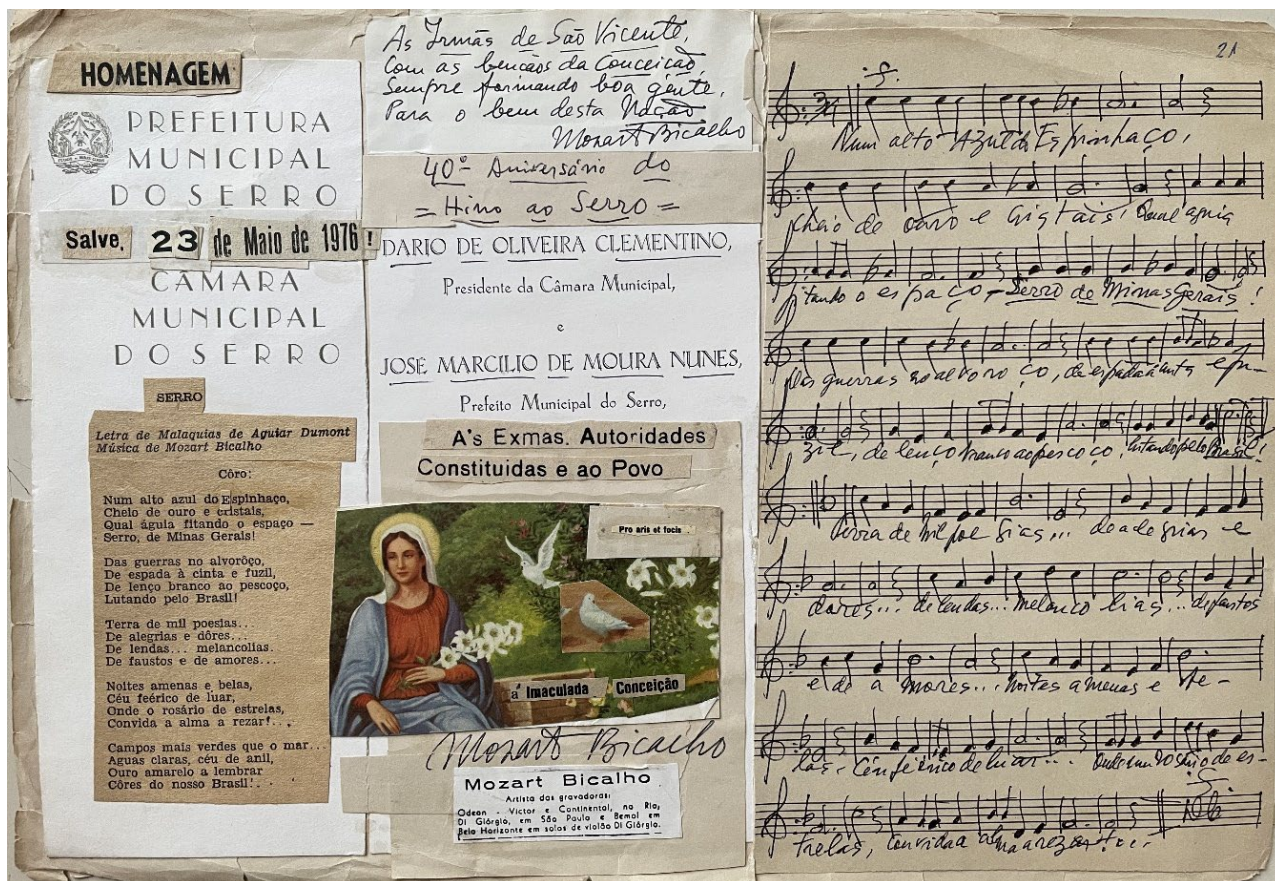 HOMENAGEM
PREFEITURA
MUNICIPAL
DO SERRO
Salve, 23 de Maio de 1976!
CÂMARA
MUNICIPAL
DO SERRO
SERRO
Letra de Malaquias de Aguiar Dumont
Música de Mozart Bicalho
Côro:
Num alto azul do Espinhaço,
Cheio de ouro e cristais,
Qual águia fitando o espaço —
Serro, de Minas Gerais!
Das guerras no alvorôço,
De espada à cinta e fuzil,
De lenço branco ao pescoço,
Lutando pelo Brasil!
Terra de mil poesias...
De alegrias e dôres...
De lendas... melancolias.
De faustos e de amores...
Noites amenas e belas,
Céu feérico de luar,
Onde o rosário de estrelas,
Convida a alma a rezar!...
Campos mais verdes que o mar...
Aguas claras, céu de anil,
Ouro amarelo a lembrar
Côres do nosso Brasil!..
As Irmãs de São Vicente,
Com as bençãos da Conceição,
Sempre formando boa gente,
Para o bem desta Nação
Mozart Bicalho
40º Aniversário do
= Hino ao Serro =
DARIO DE OLIVEIRA CLEMENTINO,
Presidente da Câmara Municipal,
e
JOSÉ MARCILIO DE MOURA NUNES,
Prefeito Municipal do Serro,
A's Exmas. Autoridades
Constituidas e ao Povo
Pro aris et focis
a' Imaculada Conceição
Mozart Bicalho
Mozart Bicalho
Artista das gravadoras:
Odeon - Victor e Continental, no Rio,
Di Giórgio, em São Paulo e Bemol em
Belo Horizonte em solos de violão Di Giórgio.
21
Num alto Azul do Espinhaço,
Cheio de ouro e Cristais! Qual aguia
fitando o espaço - Serro de Minas Gerais!
Das guerras no alvoroço, de espada à cinta e fu-
zil, de lenço branco ao pescoço, lutando pelo Brasil!
Terra de mil poe sias... de alegrias e
dores... de lendas... melanco lias... de faustos
e de a mores... Noites amenas e be-
las - Céu feérico de luar... Onde um rosário de es-
trelas, convida a alma a rezar!...